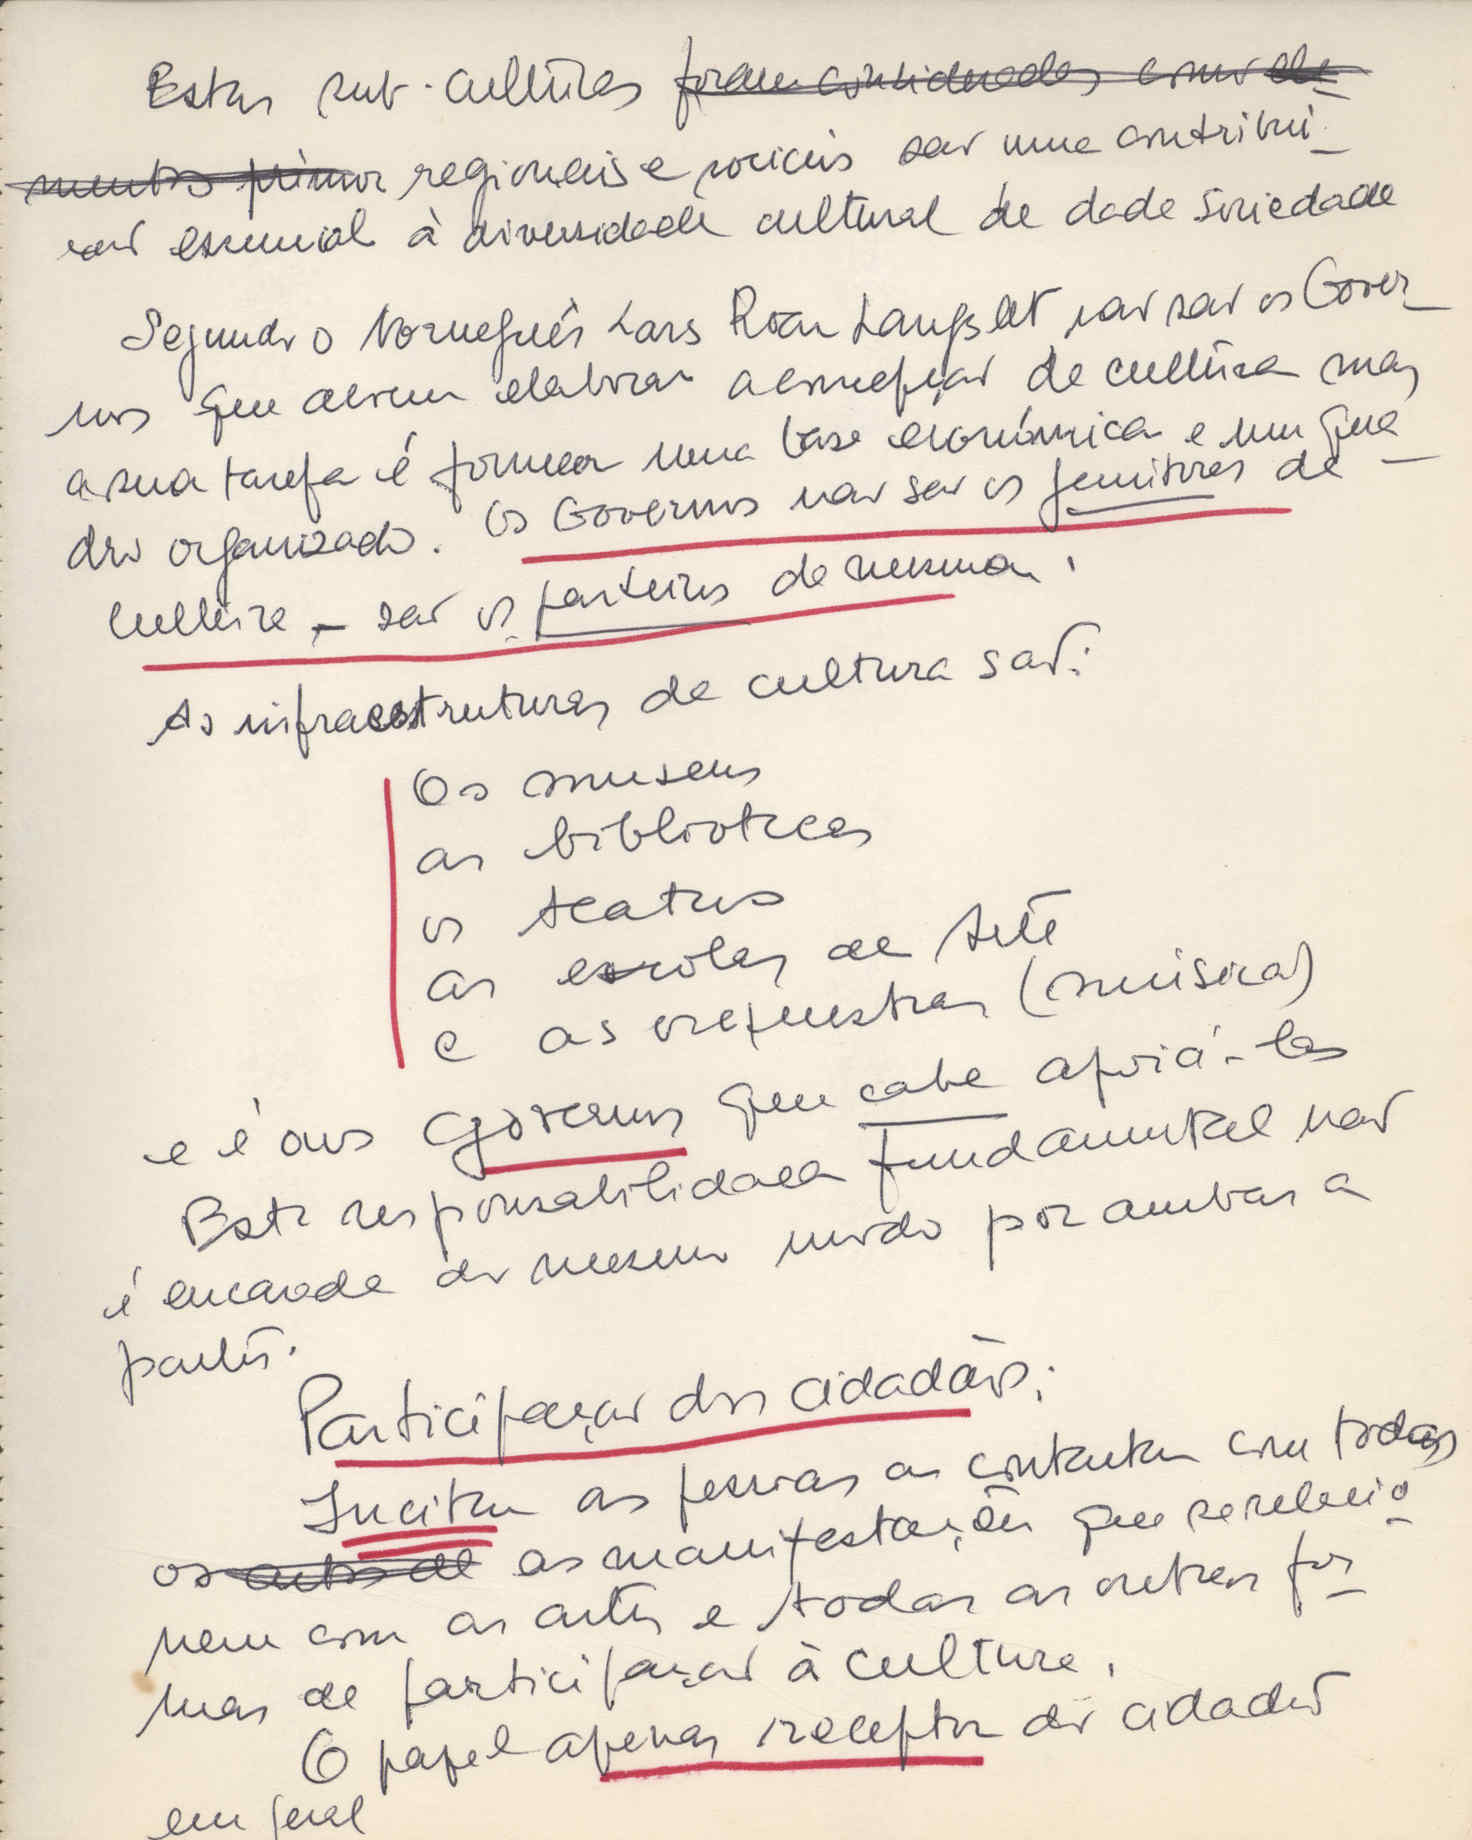 Estas sub-culturas foram consideradas como ele-
mentos primor regionais e sociais são uma contribui-
ção essencial à diversidade cultural de dada Sociedade
Segundo o Norueguês Lars Roar Langslet não são os Gover-
nos que devem elaborar a concepção de cultura mas
a sua tarefa é fornecer uma base económica e um qua-
dro organizado. Os Governos não são os genitores de
cultura - são os parteiros da mesma.
As infraestruturas da cultura são:
Os museus
as bibliotecas
os teatros
as escolas de Arte
e as orquestras (música)
e é aos Governos que cabe apoiá-las
Esta responsabilidade fundamental não
é encarada do mesmo modo por ambas a
partes.
Participação dos cidadãos:
Incitar as pessoas a contactar com todas
os actos de as manifestações que se relacio-
nem com as artes e todas as outras for-
mas de participação à cultura.
O papel apenas receptor do cidadão
em geral